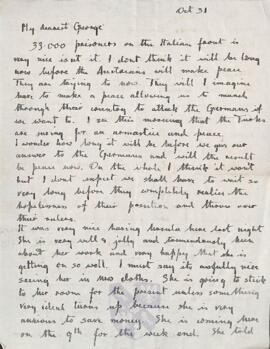 Oct 31
My dearest George
33.000 prisoners on the Italian front is
very nice isnt it. I dont think it will be long
now before the Austrians will make peace
They are trying to now. They will I imagine
have to make a peace allowing us to march
through their country to attack the Germans if
we want to. I see this morning that the Turks
are suing for an armastice and peace.
I wonder how long it will be before we give our
answer to the Germans and will the result
be peace now. On the whole I think it wont
but I dont expect we shall have to wait so
very long before they completely realise the
hopelessness of their position and throw over
their rulers.
It was very nice having Ursula here last night
She is very well & jolly and tremendously keen
about her work and very happy that she is
getting on so well. I must say its awfully nice
seeing her in nice clothes. She is going to stick
to her room for the present unless something
very ideal turns up because she is very
anxious to save money. She is coming here
on the 9th for the week end. She told